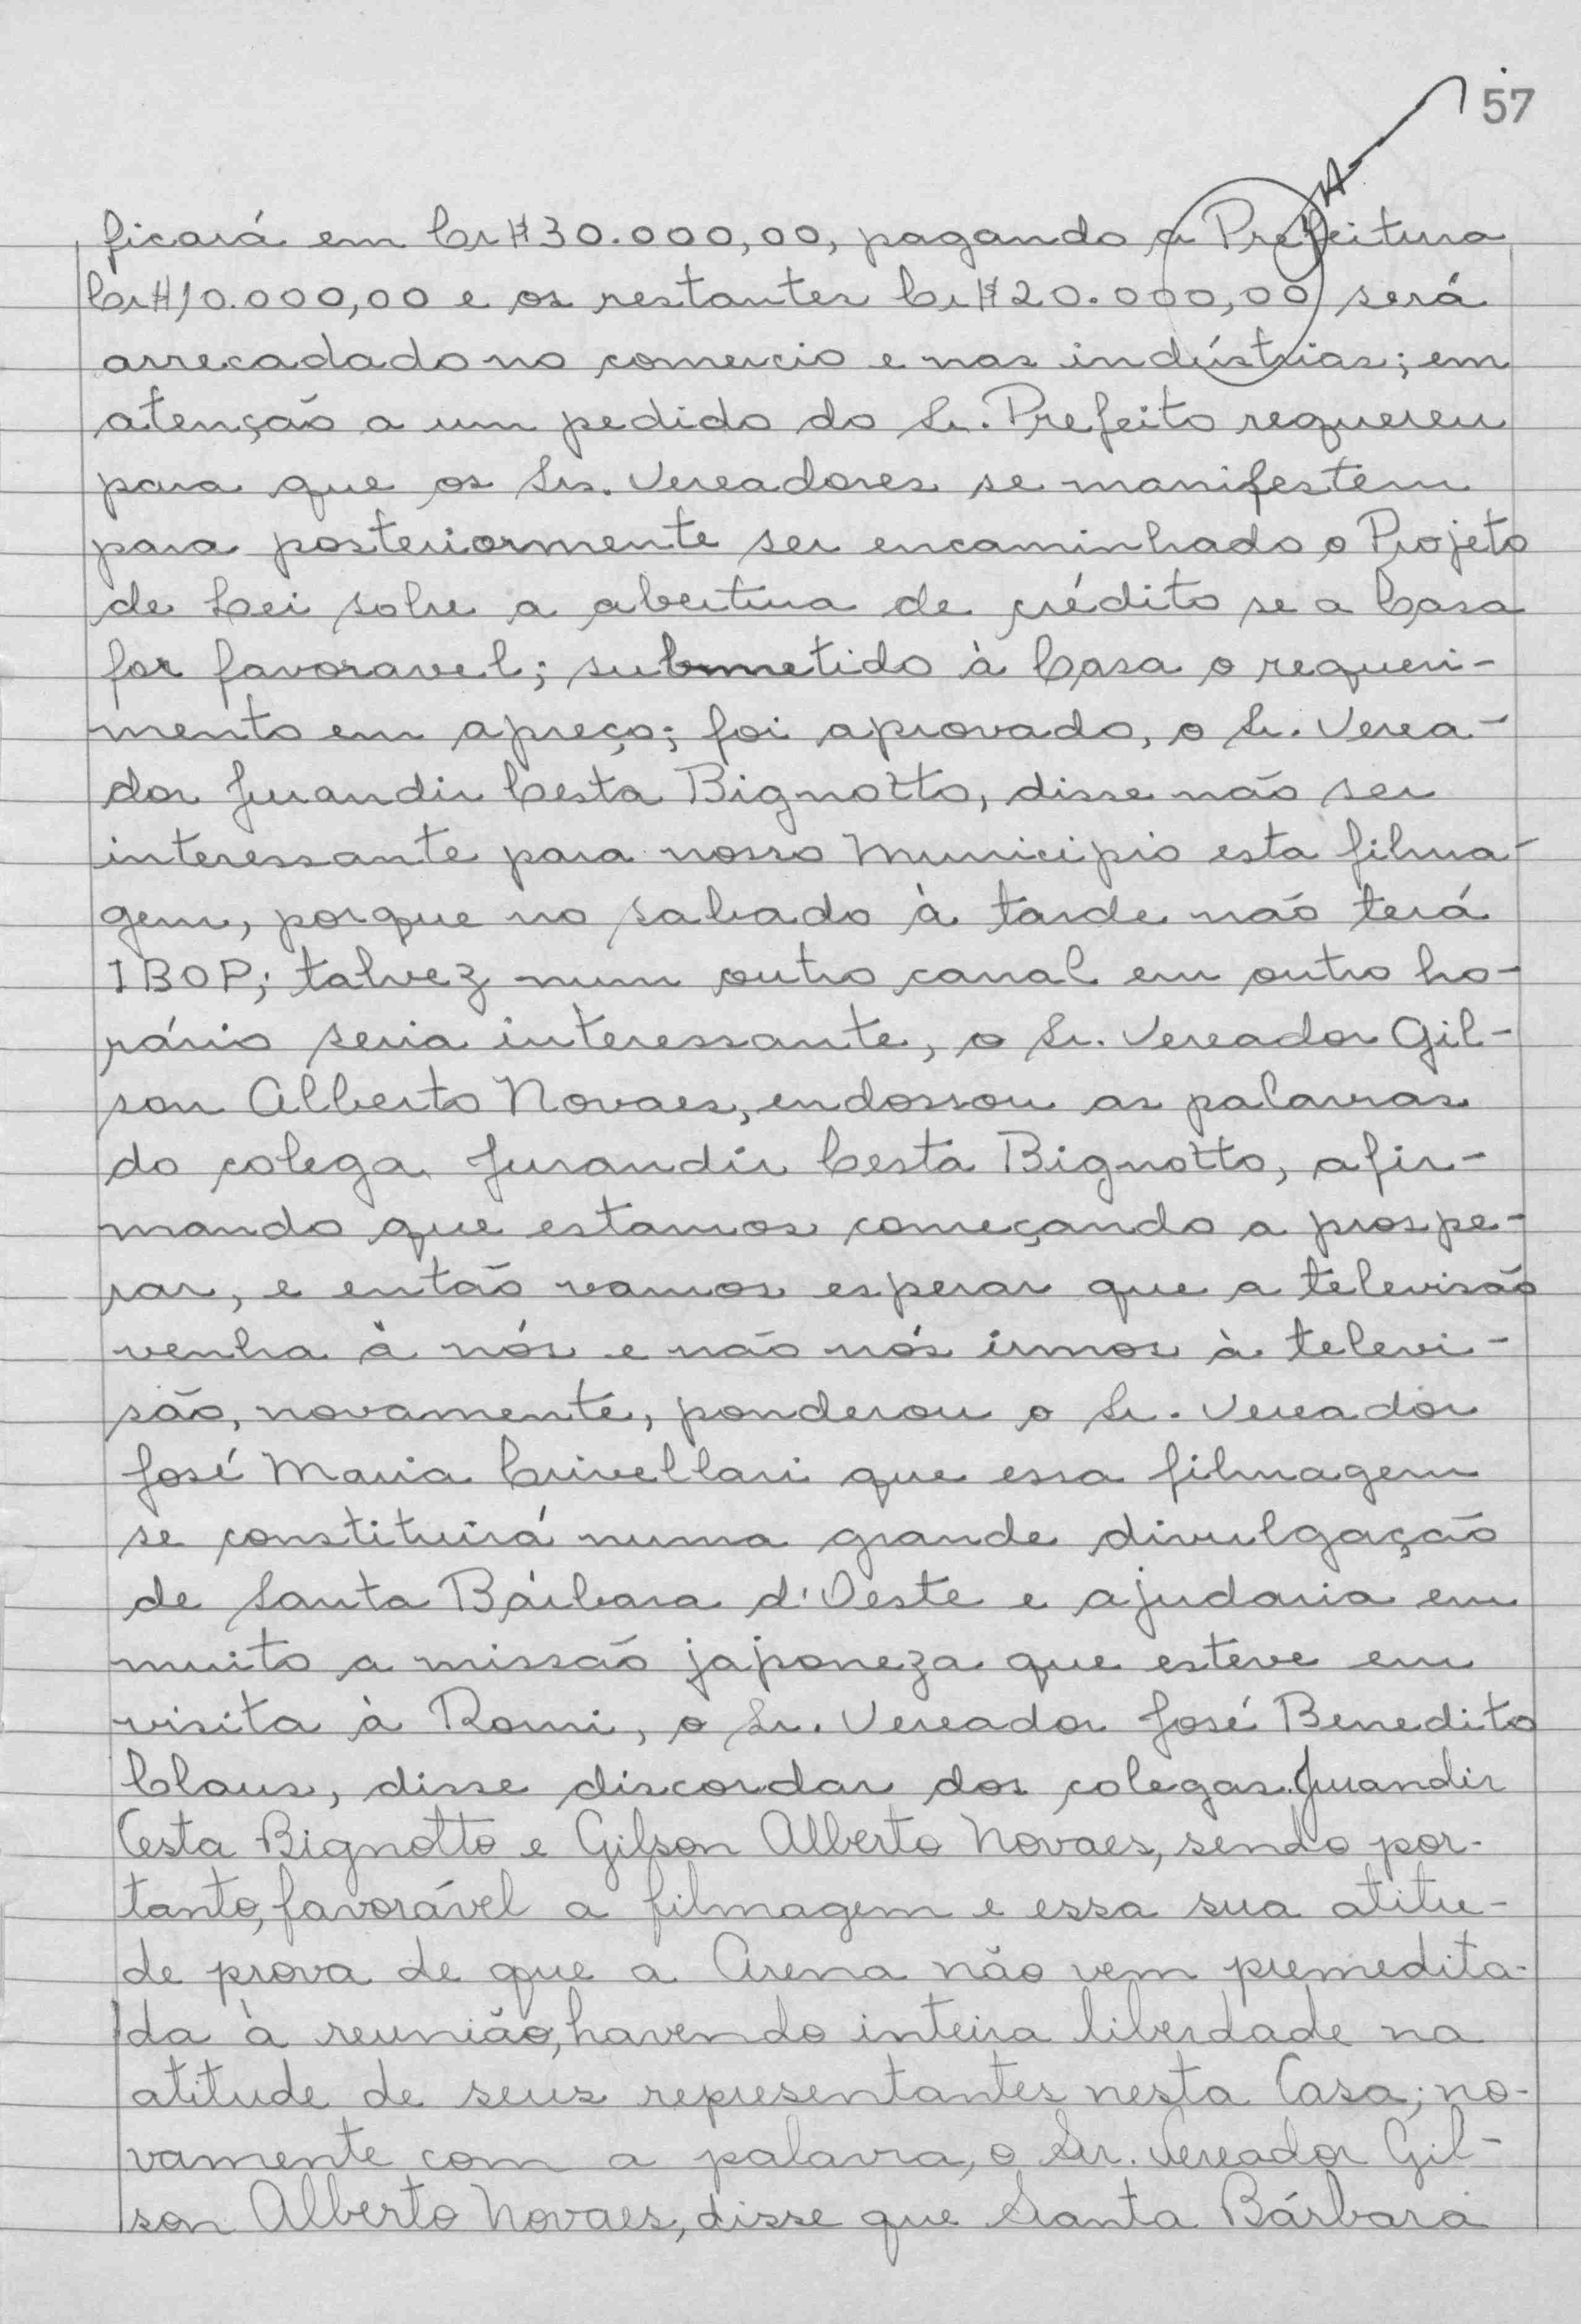 57
ficará em Cr$30.000,00, pagando a Prefeitura
Cr$10.000,00 e os restantes Cr$20.000,00 será
arrecadado no comercio e nas indústrias; em
atenção a um pedido do Sr. Prefeito requereu
para que os Srs. Vereadores se manifestem
para posteriormente ser encaminhado o Projeto
de Lei sobre a abertura de crédito se a Casa
for favoravel; submetido à Casa o requeri-
mento em apreço; foi aprovado, o Sr. Verea-
dor Jurandir Cesta Bignotto, disse não ser
interessante para nosso Municipio esta filma-
gem, porque no sabado à tarde não terá
IBOP; talvez num outro canal em outro ho-
rário seria interessante, o Sr. Vereador Gil-
son Alberto Novaes, endossou as palavras
do colega Jurandir Cesta Bignotto, afir-
mando que estamos começando a prospe-
rar, e então vamos esperar que a televisão
venha à nós e não nós irmos à televi-
são, novamente, ponderou o Sr. Vereador
José Maria Crivellari que essa filmagem
se constituirá numa grande divulgação
de Santa Bárbara d'Oeste e ajudaria em
muito a missão japoneza que esteve em
visita à Romi, o Sr. Vereador José Benedito
Claus, disse discordar dos colegas Jurandir
Cesta Bignotto e Gilson Alberto Novaes, sendo por-
tanto, favorável a filmagem e essa sua atitu-
de prova de que a Arena não vem premedita-
da à reunião, havendo inteira liberdade na
atitude de seus representantes nesta Casa; no-
vamente com a palavra, o Sr. Vereador Gil-
son Alberto Novaes, disse que Santa Bárbara